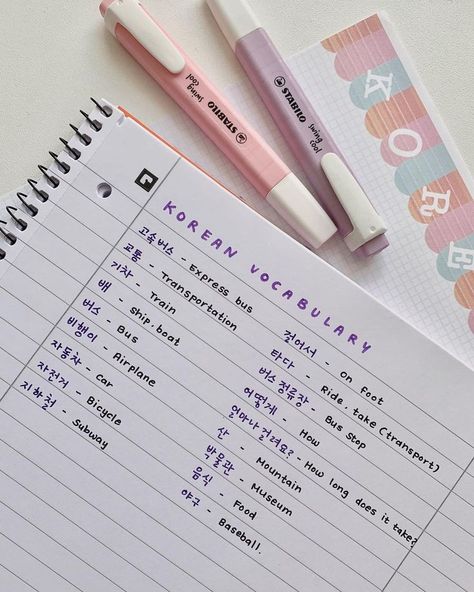 STABILO swing cool
STABILO swing cool
KORE
KOREAN VOCABULARY
고속버스 - Express bus
교통 - Transportation
기차 - Train
배 - ship.boat
버스 - Bus
비행이 - Airplane
자동차 - car
자전거 - Bicycle
지하철 - Subway
걸어서 - on foot
타다 - Ride, take (transport)
버스 정류장 - Bus Stop
어떻게 - How
얼마나 걸려요? - How long does it take?
산 - Mountain
박물관 - Museum
음식 - Food
야구 - Baseball.